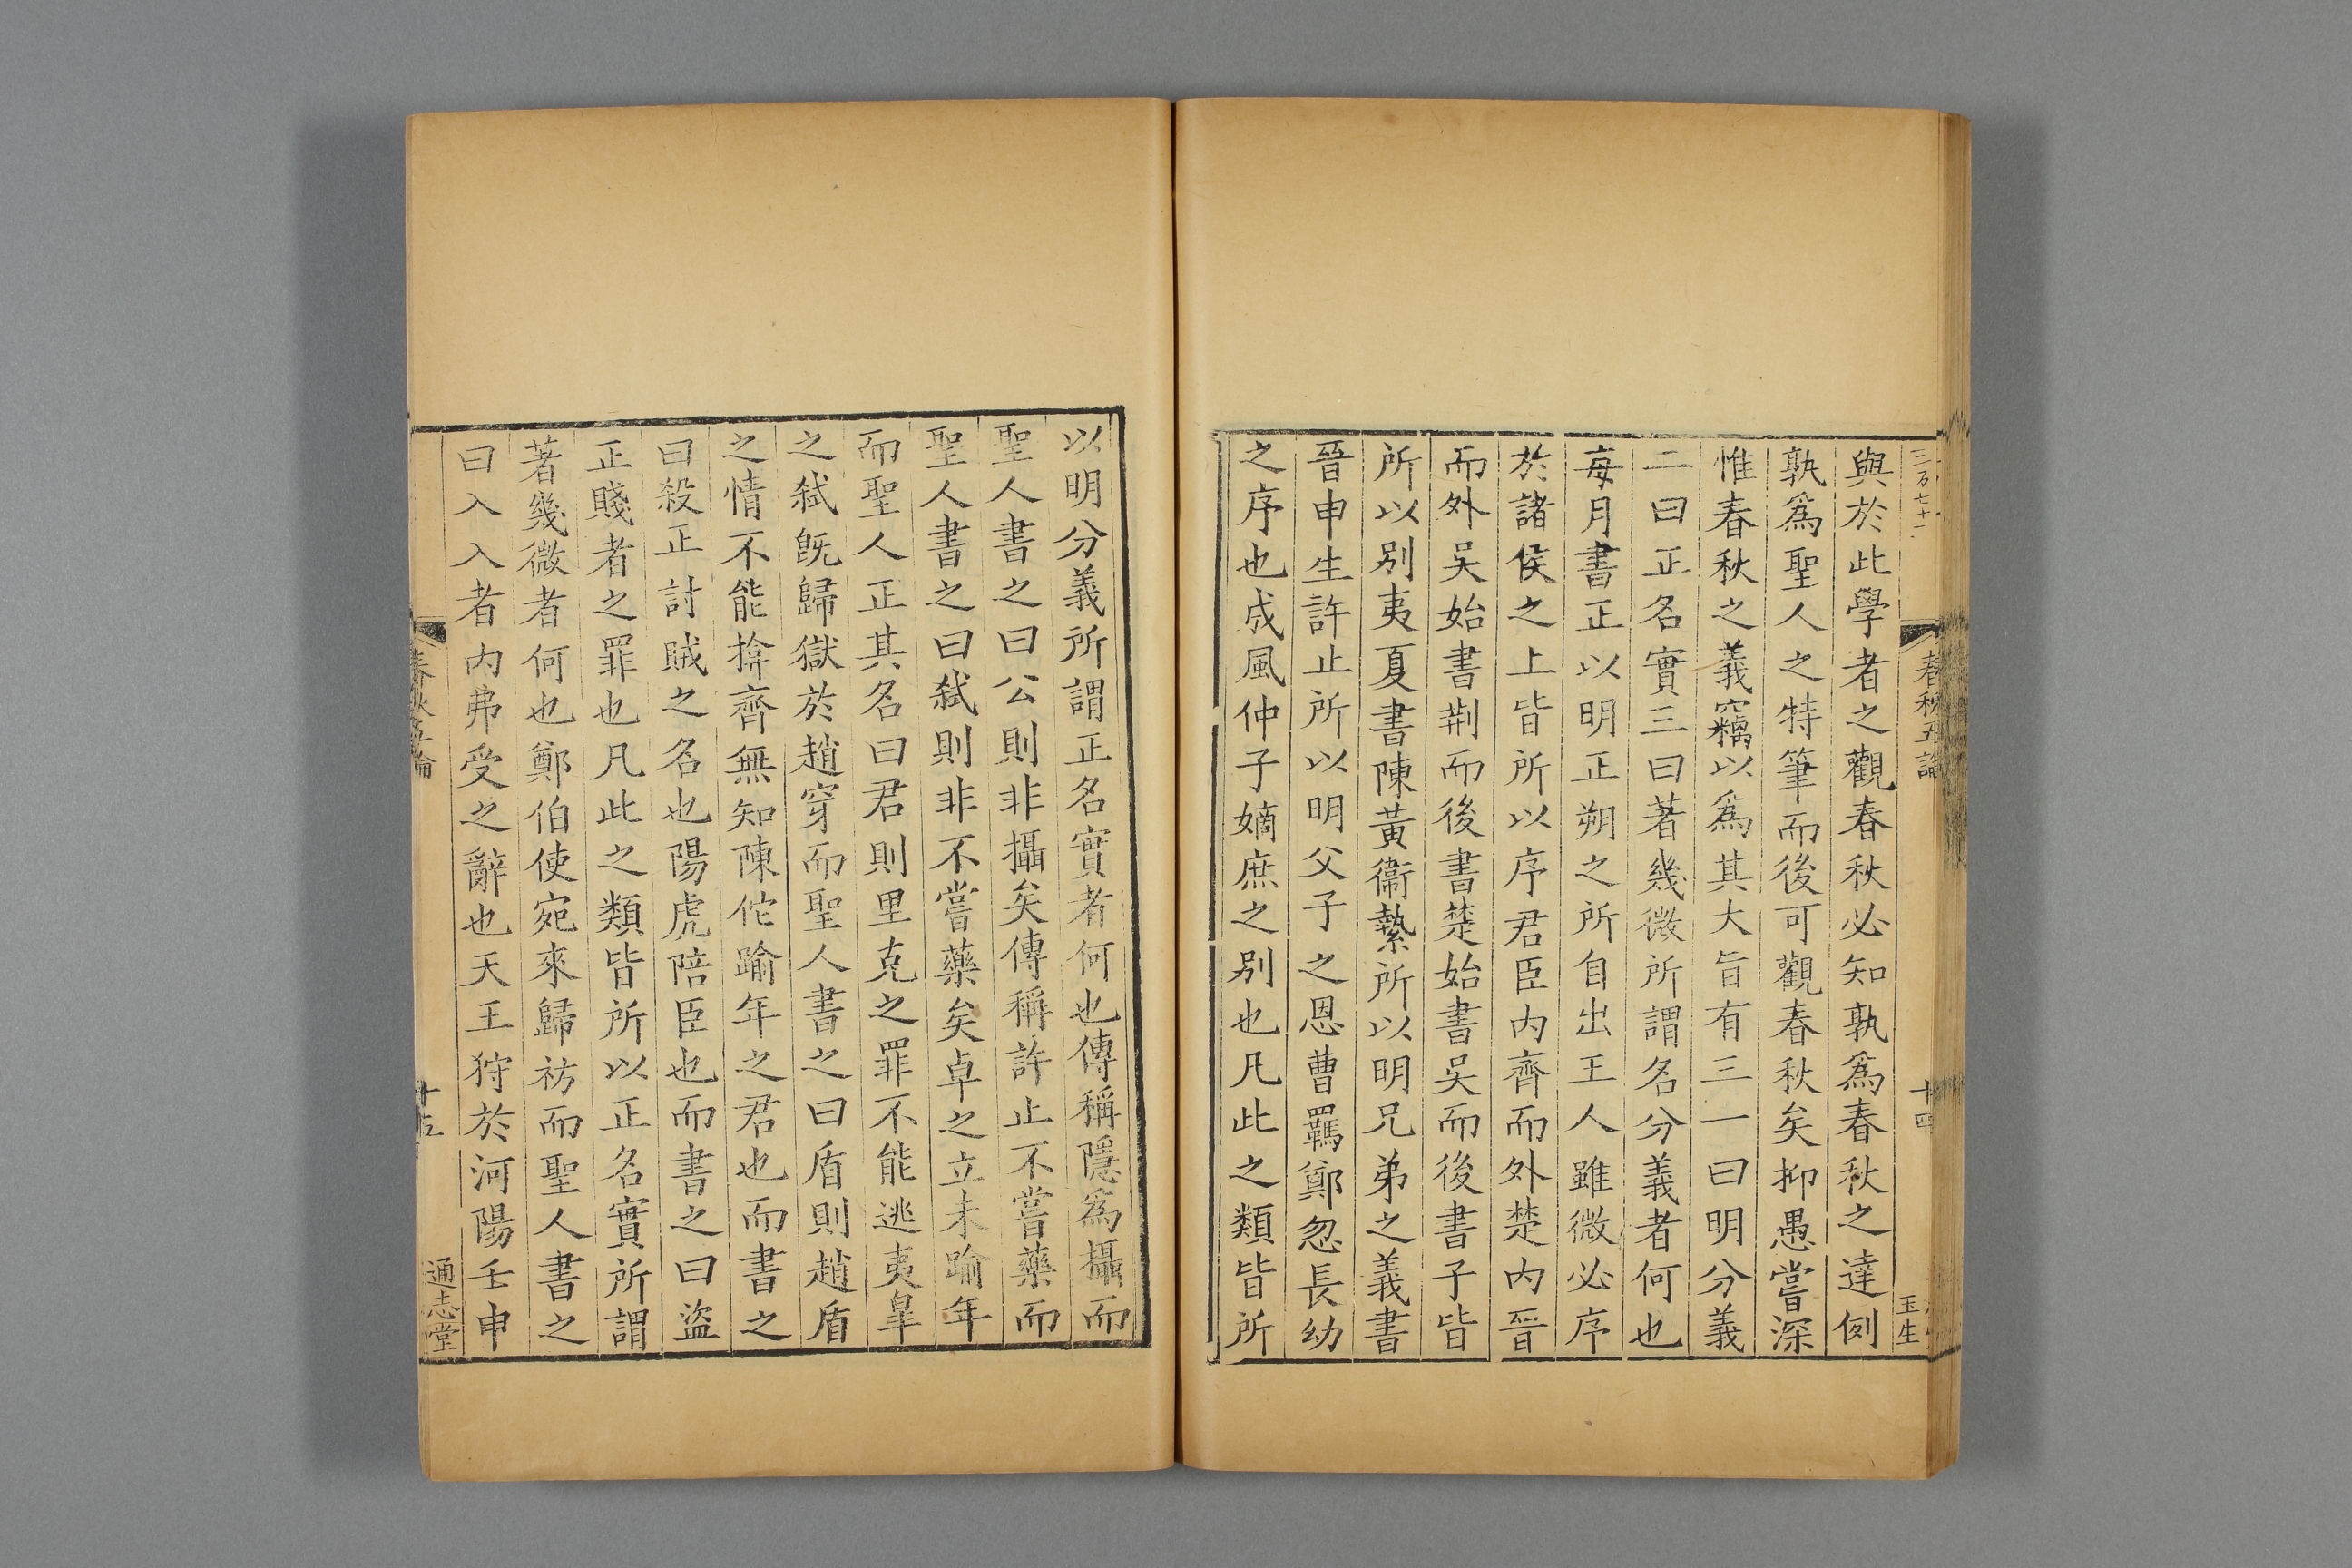 三百七十一
春秋五論
十四
玉生
與於此學者之觀春秋必知孰爲春秋之達例
孰爲聖人之特筆而後可觀春秋矣抑愚嘗深
惟春秋之義竊以爲其大旨有三一曰明分義
二曰正名實三曰著幾微所謂名分義者何也
每月書正以明正朔之所自出王人雖微必序
於諸侯之上皆所以序君臣内齊而外楚内晉
而外吳始書荆而後書楚始書吳而後書子皆
所以别夷夏書陳黃衞縶所以明兄弟之義書
晉申生許止所以明父子之恩曹羈鄭忽長幼
之序也成風仲子嫡庶之别也凡此之類皆所
以明分義所謂正名實者何也傳稱隱爲攝而
聖人書之曰公則非攝矣傳稱許止不嘗藥而
聖人書之曰弑則非不嘗藥矣卓之立未踰年
而聖人正其名曰君則里克之罪不能逃夷臯
之弑旣歸獄於趙穿而聖人書之曰盾則趙盾
之情不能揜齊無知陳佗踰年之君也而書之
曰殺正討賊之名也陽虎陪臣也而書之曰盜
正賤者之罪也凡此之類皆所以正名實所謂
著幾微者何也鄭伯使宛來歸祊而聖人書之
曰入入者内弗受之辭也天王狩於河陽壬申
春秋五論
十五
通志堂